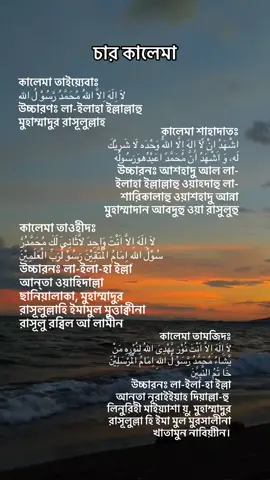 চার কালেমা
কালেমা তাইয়্যেবাঃ
لَا إِلَهَ إِلاَّ اللهُ مُحَمَّدٌ رَّسُوْلُ الله
উচ্চারণঃ লা-ইলাহা ইল্লাল্লাহু
মুহাম্মাদুর রাসূলুল্লাহ
কালেমা শাহাদাতঃ
اَشْهَدُ اَنْ لَّا اِلَهَ اِلَّا اللهُ وَحْدَهُ لَا شَرِيْكَ
لَهُ، وَ اَشْهَدُ اَنَّ مُحَمَّدًا عَبْدُهُ وَرَسُولُهُ
উচ্চারনঃ আশহাদু আল লা-
ইলাহা ইল্লাল্লাহু ওয়াহদাহু লা-
শারিকালাহু ওয়াশহাদু আন্না
মুহাম্মাদান আবদুহু ওয়া রাসূলুহু
কালেমা তাওহীদঃ
لَا اِلَهَ اِلَّا اَنْتَ وَاحِدَ لَاثَانِيَ لَكَ مُحَمَّدُرَّ
سُوْلُ اللهِ اِمَامُ الْمُتَّقِيْنَ رَسُوْلُرَبِّ الْعَلَمِيْنَ
উচ্চারনঃ লা-ইলা-হা ইল্লা
আনতা ওয়াহিদাল্লা
ছানিয়ালাকা, মুহাম্মাদুর
রাসূলুল্লাহি ইমামুল মুত্তাক্বীনা
রাসূলু রব্বিল আ লামীন
কালেমা তামজিদঃ
لَا اِلَهَ اِلَّا اَنْتَ نُوْرَ يَّهْدِىَ اللهُ لِنُوْرِهِ مَنْ
يَّشَاءُ مُحَمَّدٌ رَّسُوْلُ اللهِ اِمَامُ الْمُرْسَلِيْنَ
خَا تَمُ النَّبِيِّنَ
উচ্চারনঃ লা-ইলা-হা ইল্লা
আনতা নূরাইইয়াহ দিয়াল্লা-হু
লিনুরিহী মাইয়্যাশা য়ু, মুহাম্মাদুর
রাসূলুল্লা হি ইমা মুল মুরসালীনা
খাতামুন নাবিয়্যীন।